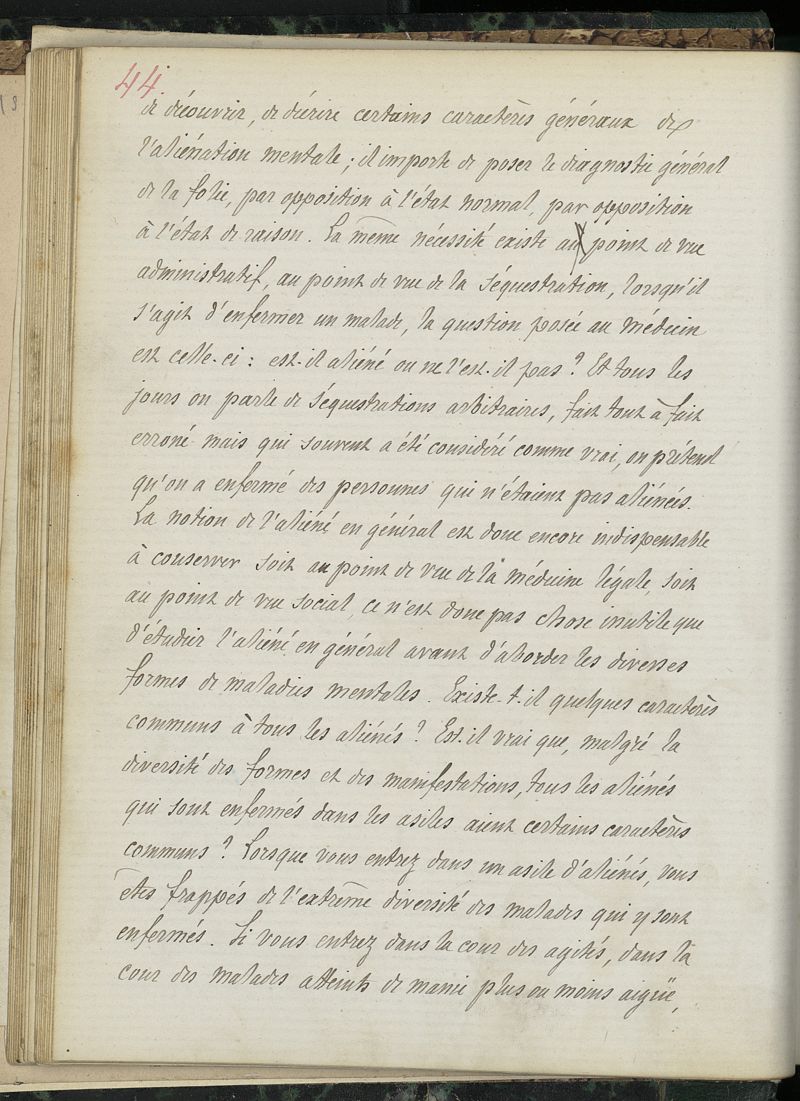 44.
de découvrir, de décrire certains caractères généraux de
l'aliénation mentale ; il importe de poser le diagnostic général
de la folie, par opposition à l'état normal, par opposition
à l'état de raison. La même nécessité existe au point de vue
administratif, au point de vue de la séquestration, lorsqu'il
s'agit d'enfermer un malade, la question posée au médecin
est celle-ci : est-il aliéné ou ne l'est-il pas ? Et tous les
jours on parle de séquestrations arbitraires, fait tout à fait
erroné mais qui souvent a été considéré comme vrai, on prétend
qu'on a enfermé des personnes qui n'étaient pas aliénées.
La notion de l'aliéné en général est donc encore indispensable
à conserver soit au point de vue de la médecine légale, soit
au point de vue social, ce n'est donc pas chose inutile que
d'étudier l'aliéné en général avant d'aborder les diverses
formes de maladies mentales. Existe-t-il quelques caractères
communs à tous les aliénés ? Est-il vrai que, malgré la
diversité des formes et des manifestations, tous les aliénés
qui sont enfermés dans les asiles aient certains caractères
communs ? Lorsque vous entrez dans un asile d'aliénés, vous
êtes frappés de l'extrême diversité des malades qui y sont
enfermés. Si vous entrez dans la cour des agités, dans la
cour des malades atteints de manie plus ou moins aigüe,